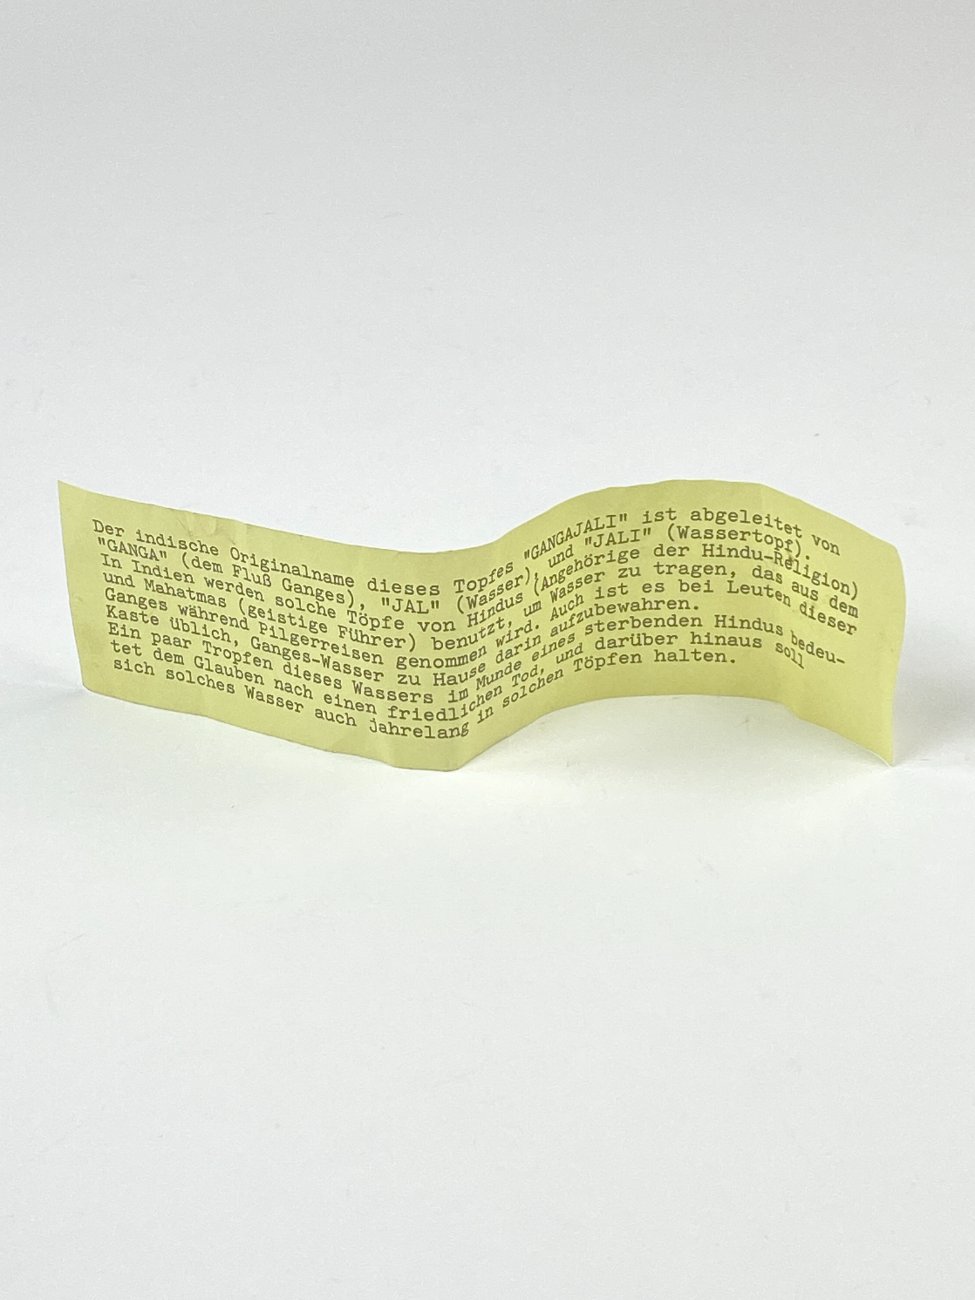 Der indische Originalname dieses Topfes "GANGAJALI" ist abgeleitet von
"GANGA" (dem Fluß Ganges), "JAL" (Wasser) und "JALI" (Wassertopf).
In Indien werden solche Töpfe von Hindus (Angehörige der Hindu-Religion)
und Mahatmas (geistige Führer) benutzt, um Wasser zu tragen, das aus dem
Ganges während Pilgerreisen genommen wird. Auch ist es bei Leuten dieser
Kaste üblich, Ganges-Wasser zu Hause darin aufzubewahren.
Ein paar Tropfen dieses Wassers im Munde eines sterbenden Hindus bedeu-
tet dem Glauben nach einen friedlichen Tod, und darüber hinaus soll
sich solches Wasser auch jahrelang in solchen Töpfen halten.